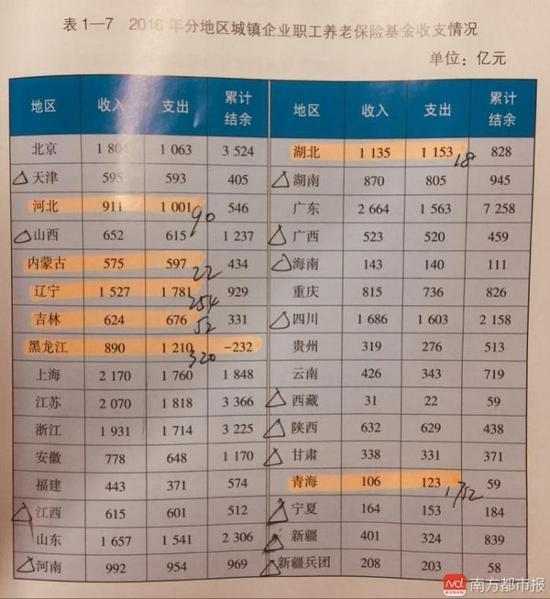 表1—7 2016年分地区城镇企业职工养老保险基金收支情况
单位：亿元
地区 收入 支出 累计结余 地区 收入 支出 累计结余
北京 1 804 1 063 3 524 湖北 1 135 1 153 828
18
天津 595 593 405 湖南 870 805 945
河北 911 1 001 546 广东 2 664 1 563 7 258
90
山西 652 615 1 237 广西 523 520 459
内蒙古 575 597 434 海南 143 140 111
22
辽宁 1 527 1 781 929 重庆 815 736 826
254
吉林 624 676 331 四川 1 686 1 603 2 158
52
黑龙江 890 1 210 -232 贵州 319 276 513
320
上海 2 170 1 760 1 848 云南 426 343 719
江苏 2 070 1 818 3 366 西藏 31 22 59
浙江 1 931 1 714 3 225 陕西 632 629 438
安徽 778 648 1 170 甘肃 338 331 371
福建 443 371 574 青海 106 123 59
江西 615 601 512 宁夏 164 153 184
山东 1 657 1 541 2 306 新疆 401 324 839
河南 992 954 969 新疆兵团 208 203 58
南方都市报